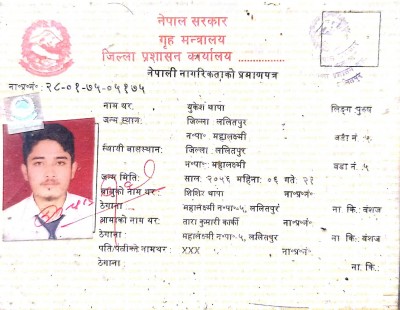 नेपाल सरकार
गृह मन्त्रालय
जिल्ला प्रशासन कार्यालय ..................
नेपाली नागरिकताको प्रमाणपत्र
ना॰प्र॰नं॰ : २८-०१-७५-०५१७५
नाम थर: युकेश थापा लिङ्ग: पुरुष
जन्म स्थान: जिल्ला: ललितपुर
न॰पा॰ महालक्ष्मी वडा नं
स्थायी बासस्थान: जिल्ला: ललितपुर
न॰पा॰: महालक्ष्मी वडा नं .५
जन्म मिति: साल: २०५६ महिना: ०६ गते: २१
बाबुको नाम थर: शिशिर थापा ना॰प्र॰नं॰
ठेगाना: महालक्ष्मी न॰पा॰-५, ललितपुर ना कि: वंशज
आमाको नाम थर: तारा कुमारी कार्की ना॰प्र॰नं॰
ठेगाना: महालक्ष्मी न॰पा॰-५, ललितपुर ना॰ कि: वंशज
पति/पत्नीको नामथर: XXX ना॰प्र॰नं॰
ठेगाना: ना॰ कि: